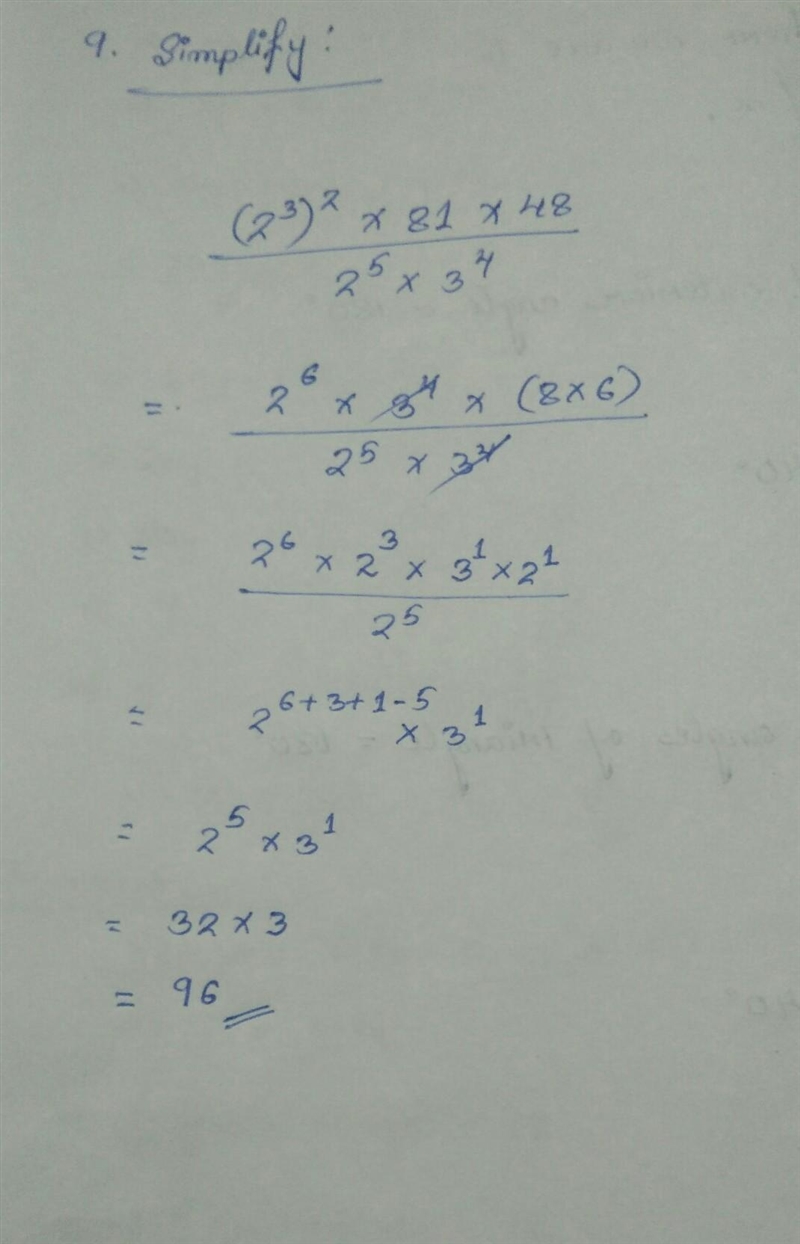 9. Simplify:
(2³)² × 81 × 48
2⁵ × 3⁴
= 2⁶ × 3⁴ × (8×6)
2⁵ × 3⁴
= 2⁶ × 2³ × 3¹ × 2¹
2⁵
= 2⁶⁺³⁺¹⁻⁵ × 3¹
= 2⁵ × 3¹
= 32 × 3
= 96